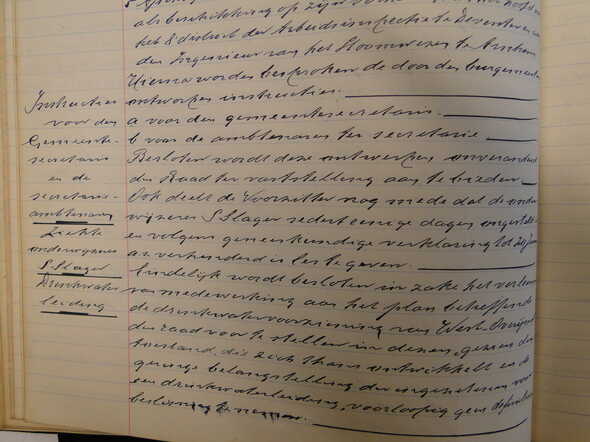 als beschikking op zijn
het 8e district der Arbeidsinspectie te Deventer en van
den Ingenieur van het Stoomwezen te Arnhem
Hierna worden besproken de door den burgemeester
ontworpen instructies.
a voor den gemeentesecretaris.
b voor de ambtenaren ter secretarie
Besloten wordt deze ontwerpen onveranderd
den Raad ter vaststelling aan te bieden.
Ook deelt de Voorzitter nog mede dat de onder
wijzeres S. Slager sedert eenige dagen ongesteld
en volgens geneeskundige verklaring tot 20 Janu
ari verhinderd is les te geven.
Eindelijk wordt besloten in zake het verleenen
van medewerking aan het plan betreffende
de drinkwatervoorziening van West-Overijssel
den raad voor te stellen in dezen, gezien den
toestand, die zich thans ontwikkelt en de
geringe belangstelling der ingezetenen voor
een drinkwaterleiding, voorloopig geen definitieve
beslissing te nemen.
Instructies
voor den
Gemeente-
secretaris
en de
secretarie-
ambtenaren
Ziekte
onderwijzeres
S. Slager
Drinkwater
leiding